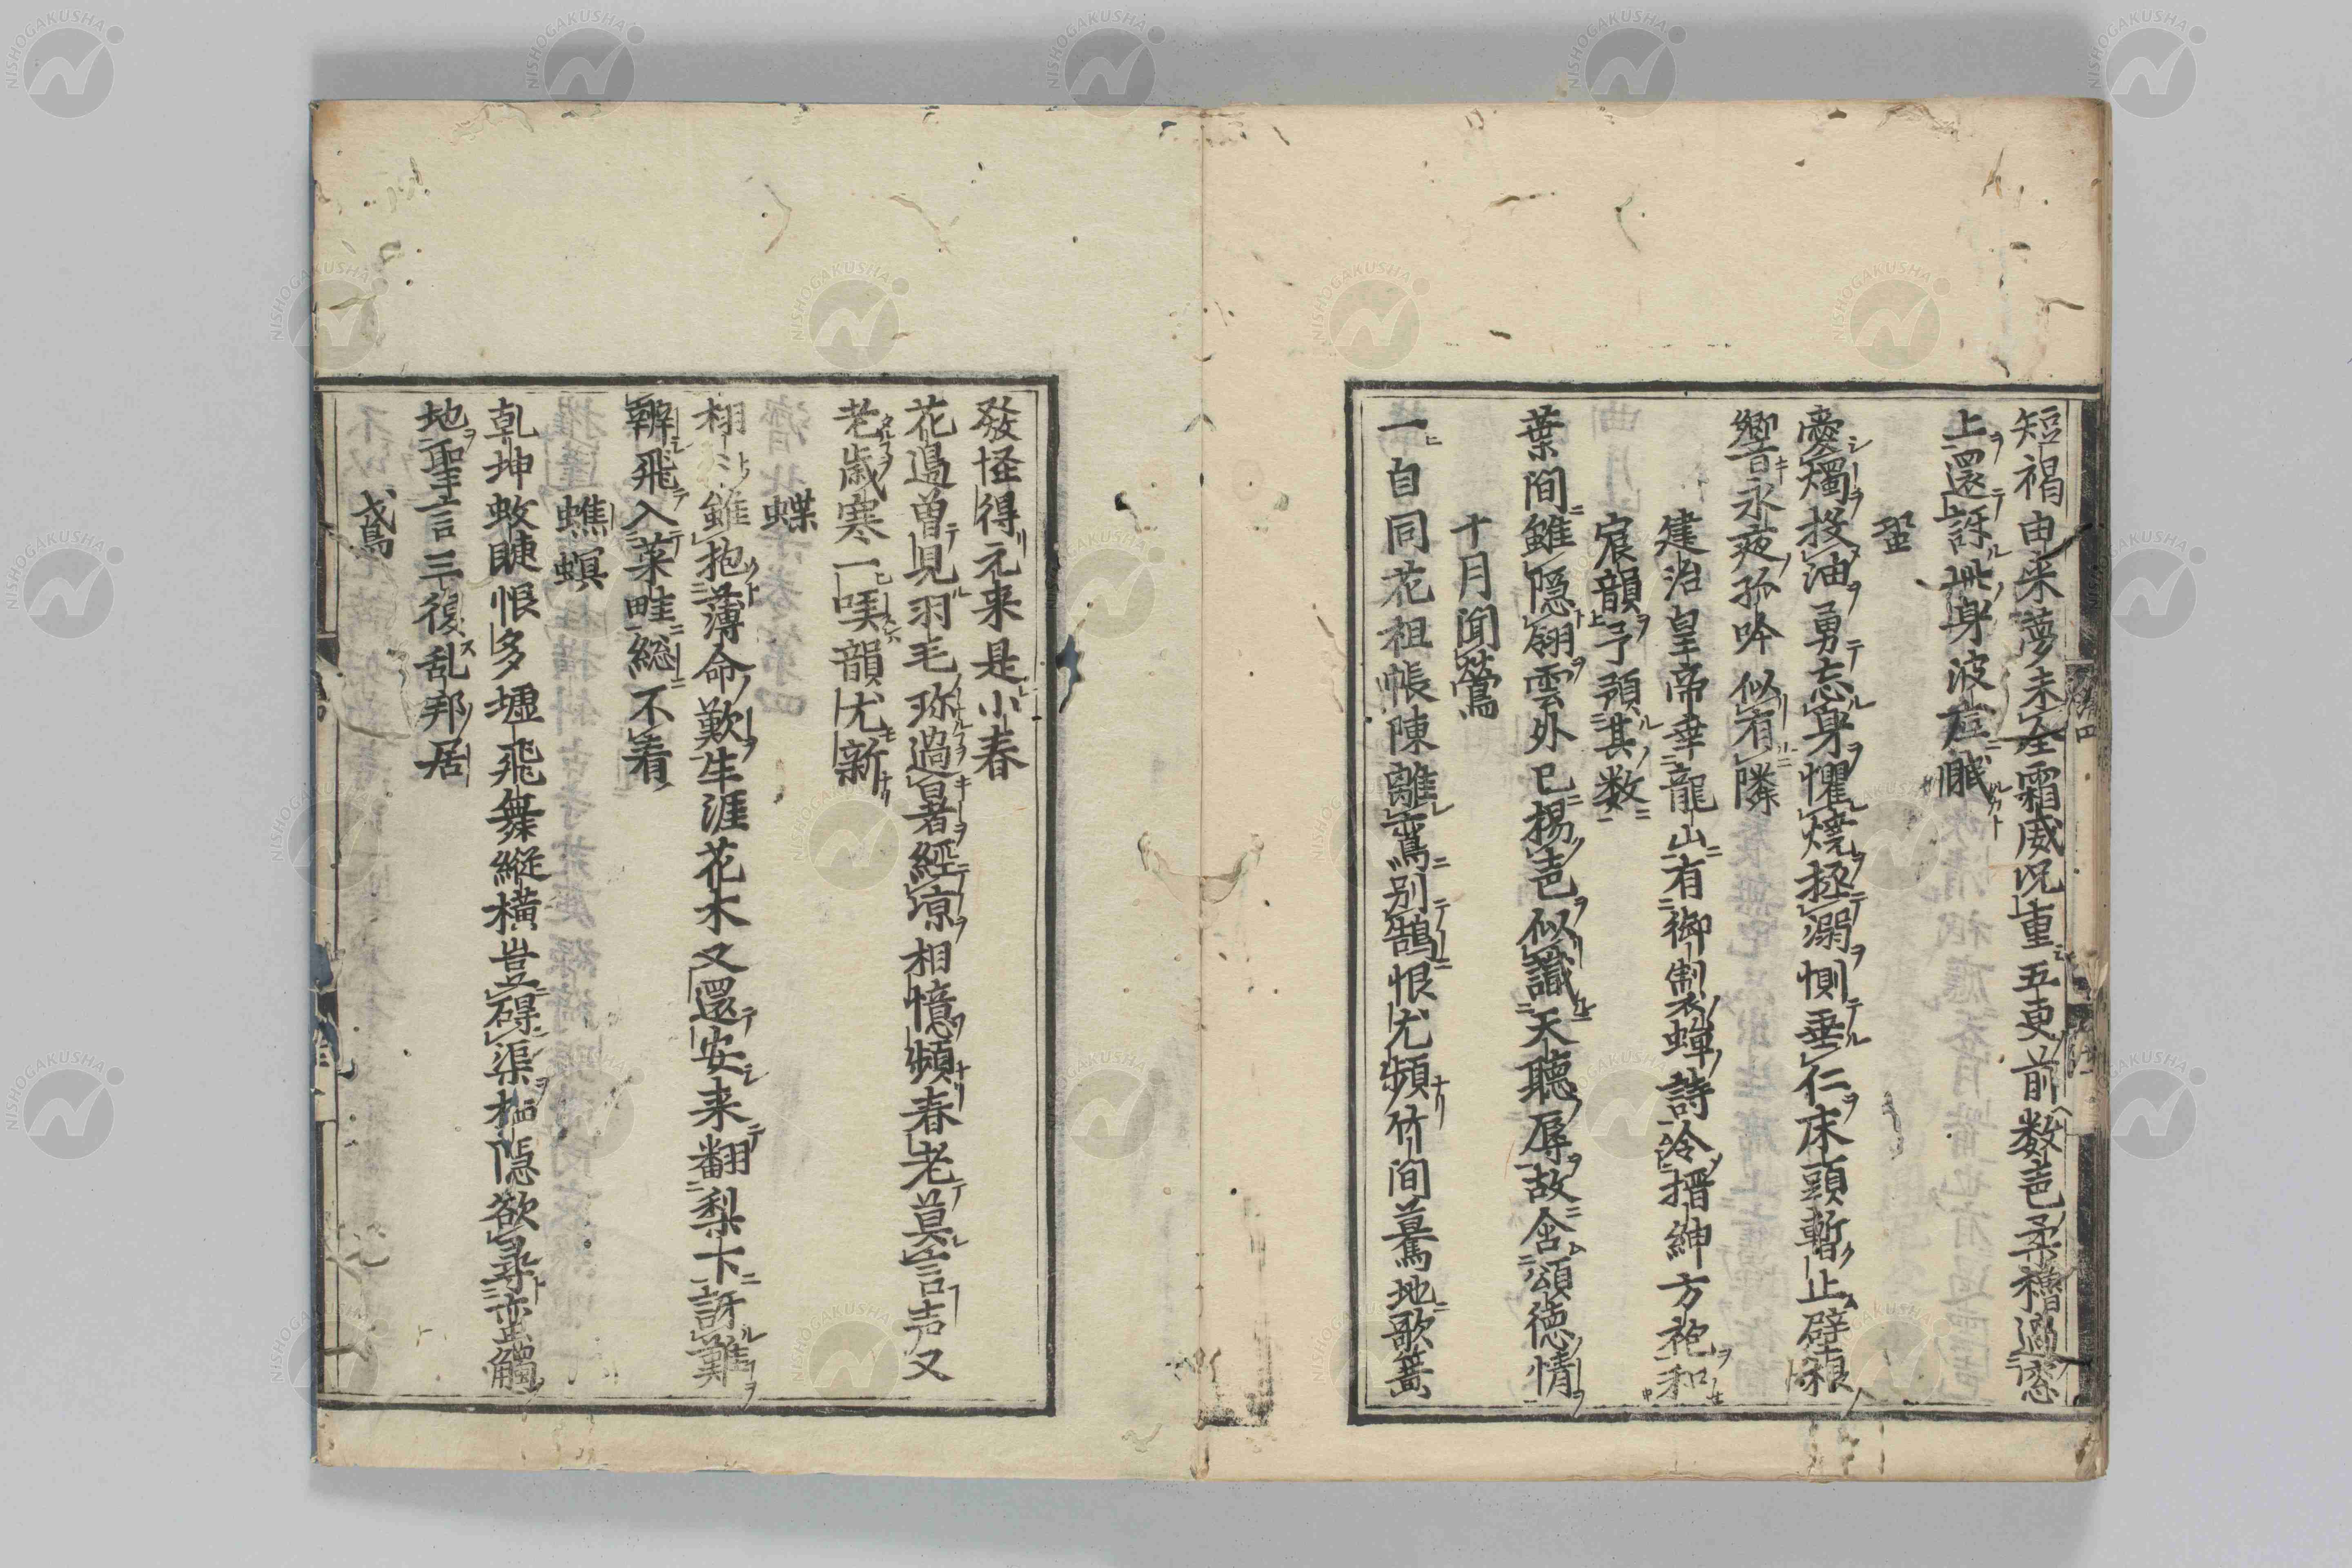 短褐由来夢未全霜威况重五更前数声柔櫓過窓
上還訝此身波底眠
蛩
憂燭投油勇忘身懼焼拯溺惻垂仁床頭暫止壁根
響永夜孤吟似有隣
建治皇帝幸龍山有御制蟬詩冷搢紳方袍和
宸韻予預其数
葉間雖隠翎雲外已揚声似識天聴辱故含頌徳情
十月聞鶯
一自同花祖帳陳離鸞別鵠恨尤頻竹間驀地歌簧
發怪得元来是小春
花過曽見羽毛珎過暑經凉相憶頻春老莫言声又
老歳寒一唭韻尤新
蝶
栩々雖抱薄命歎生涯花木又還安来翻梨下訝難
辨飛入菜畦総不着
蟭螟
乾坤蚊睫恨多墟飛舞縦横豈碍渠栖隠欲尋蛮觸
地聖言三復乱邦居
鳶